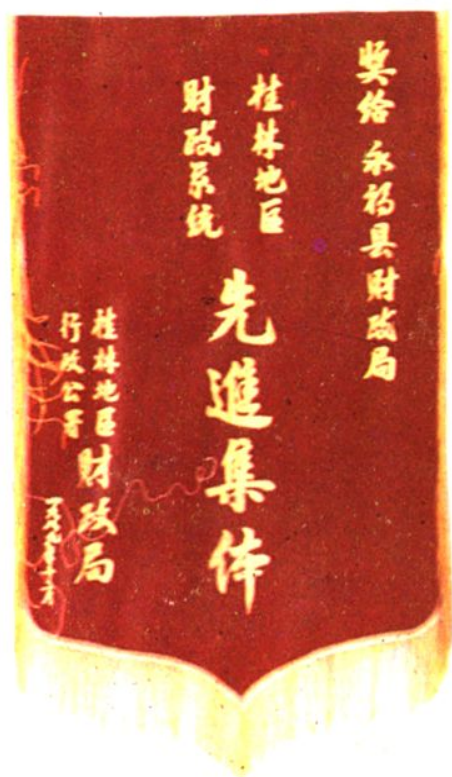 奖给 永福县财政局
桂林地区
财政系统
先進集体
桂林地区
行政公署
财政局